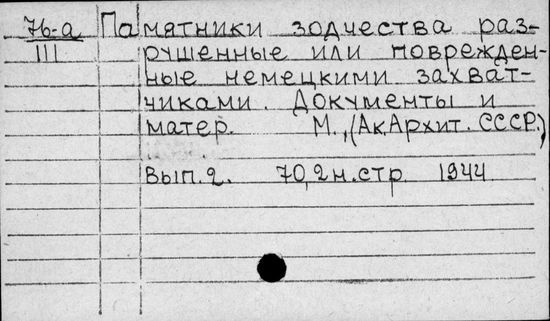 76-а Памятники зодчества раз-
III рушенные или поврежден-
ные немецкими захват-
чиками. Документы и
матер. М., (Ак.Архит. СССР.)
Вып.2. 70,2н.стр. 1944